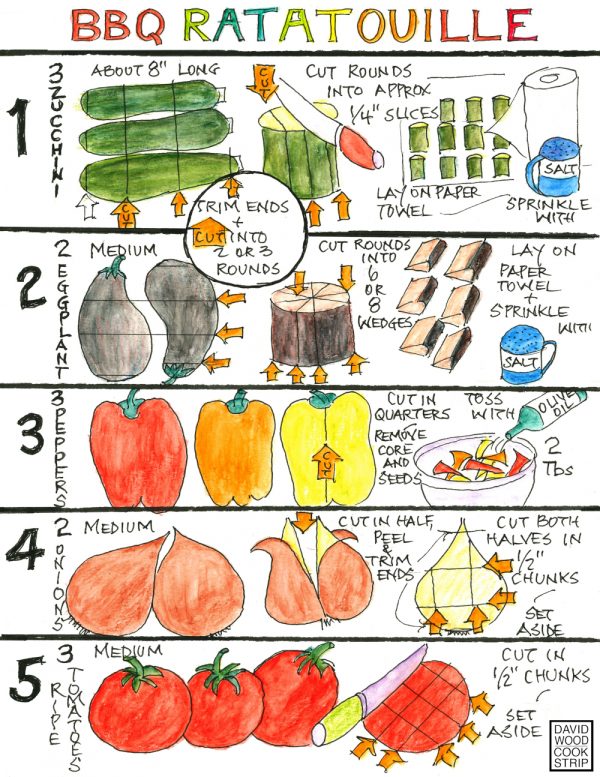 BBQ RATATOUILLE
1
3 ZUCCHINI
ABOUT 8" LONG
CUT
CUT
CUT ROUNDS
INTO APPROX
1/4" SLICES
LAY ON PAPER
TOWEL
SALT
SPRINKLE
WITH
TRIM ENDS
+
CUT INTO
2 OR 3
ROUNDS
2
2 EGGPLANT
MEDIUM
CUT ROUNDS
INTO
6
OR
8
WEDGES
LAY ON
PAPER
TOWEL
+
SPRINKLE
WITH
SALT
3
3 PEPPERS
CUT
CUT IN
QUARTERS
REMOVE
CORE
AND
SEEDS
TOSS
WITH
OLIVE
OIL
2
Tbs
4
2 ONIONS
MEDIUM
CUT IN HALF,
PEEL
&
TRIM
ENDS
CUT BOTH
HALVES IN
1/2"
CHUNKS
SET
ASIDE
5
3 RIPE TOMATOES
MEDIUM
CUT IN
1/2" CHUNKS
SET
ASIDE
DAVID
WOOD
COOK
STRIP